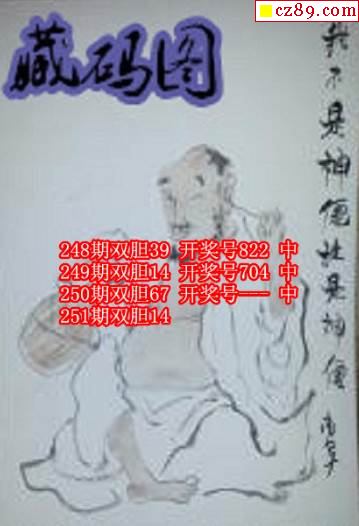 cz89.com
藏码图
我不是神仙胜是神仙
248期双胆39 开奖号822 中
249期双胆14 开奖号704 中
250期双胆67 开奖号--- 中
251期双胆14